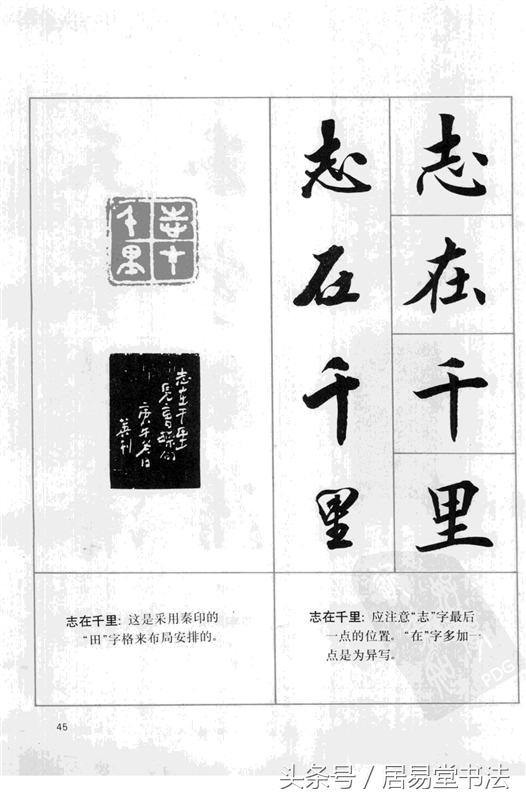 志在千里
志在千里
志在千里
志在千里
庚午
志在千里：这是采用秦印的
“田”字格来布局安排的。
志在千里：应注意“志”字最后
一点的位置。“在”字多加一
点是为异写。
45
PDG
头条号 / 居易堂书法